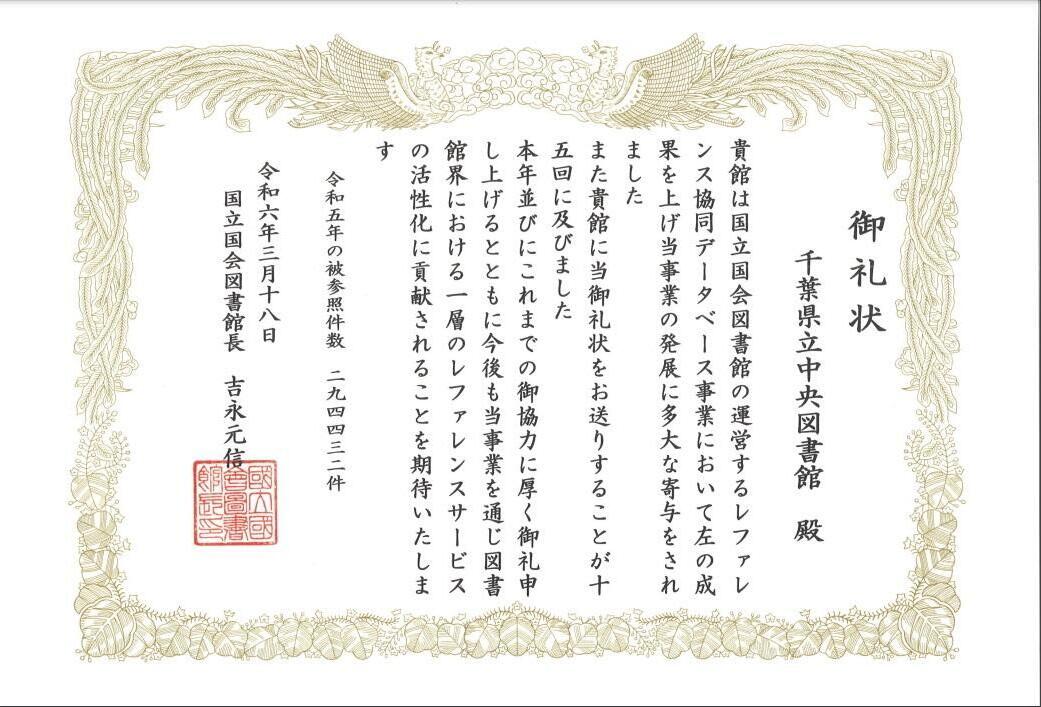 御礼状
千葉県立中央図書館　殿
貴館は国立国会図書館の運営するレファレ
ンス協同データベース事業において左の成
果を上げ当事業の発展に多大な寄与をされ
ました
また貴館に当御礼状をお送りすることが十
五回に及びました
本年並びにこれまでの御協力に厚く御礼申
し上げるとともに今後も当事業を通じ図書
館界における一層のレファレンスサービス
の活性化に貢献されることを期待いたしま
す
令和五年の被参照件数　二九四四三二件
令和六年三月十八日
国立国会図書館長　吉永元信
國立國
會圖書
館長印